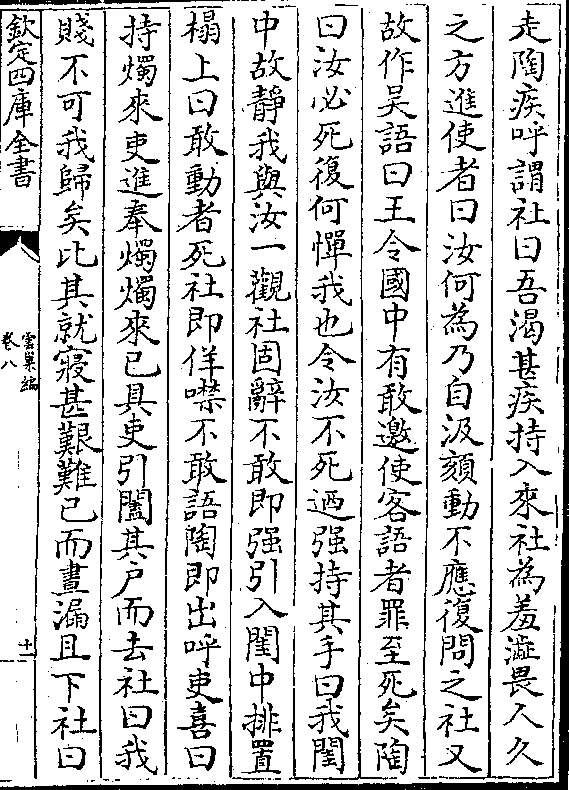 走陶疾呼謂社曰吾渴甚疾持入來社為羞澁畏人久
之方進使者曰汝何為乃自汲頞動不應復問之社又
故作吴語曰王令國中有敢邀使客語者罪至死矣陶
曰汝必死復何憚我也令汝不死迺强持其手曰我閨
中故靜我與汝一觀社固辭不敢即强引入閨中排置
榻上曰敢動者死社即佯噤不敢語陶即出呼吏喜曰
持燭來吏進奉燭燭來已具吏引闔其戶而去社曰我
賤不可我歸矣比其就寢甚艱難已而晝漏且下社曰
欽定四庫全書
雲巢編
卷八
十